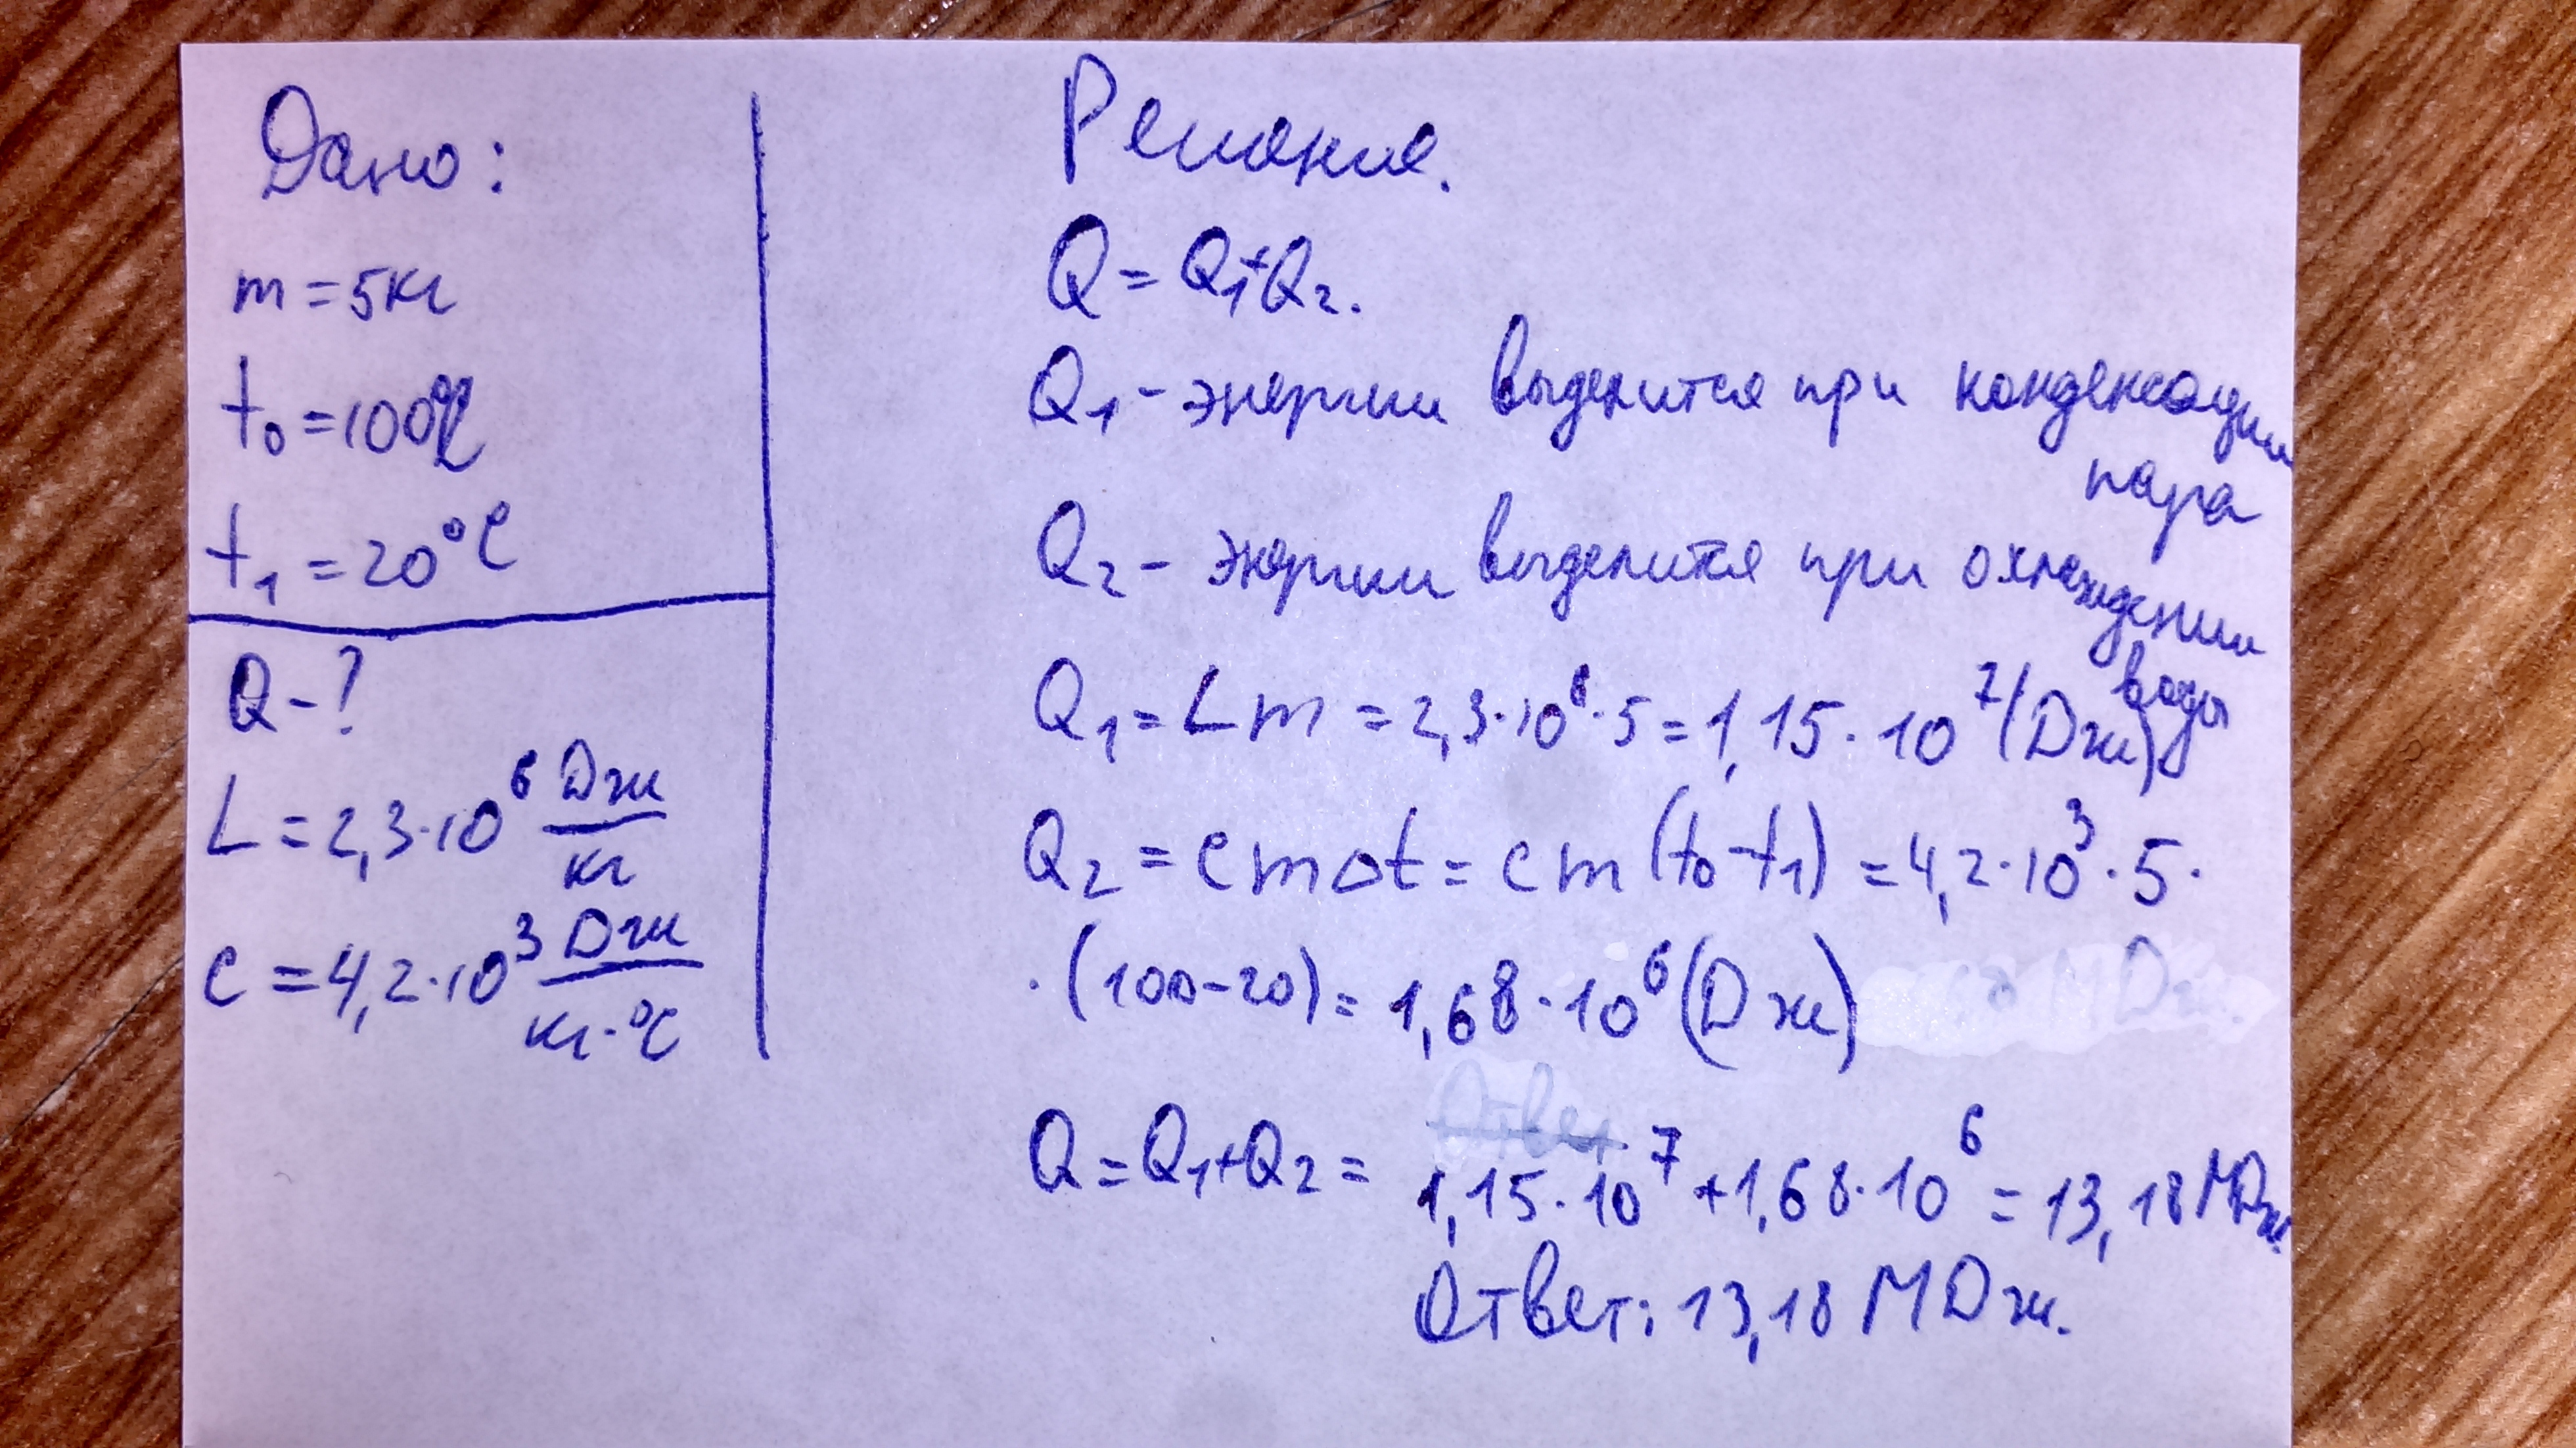 Дано:
m = 5кг
t₀ = 100°C
t₁ = 20°C
Q - ?
L = 2,3·10⁶ Дж/кг
c = 4,2·10³ Дж/кг·°C
Решение.
Q = Q₁+Q₂.
Q₁ - энергии выделится при конденсации
пара
Q₂ - энергии выделится при охлаждении
воды
Q₁ = Lm = 2,3·10⁶·5 = 1,15·10⁷ (Дж)
Q₂ = cmΔt = cm(t₀-t₁) = 4,2·10³·5·
·(100-20) = 1,68·10⁶ (Дж)
Q = Q₁+Q₂ = 1,15·10⁷ + 1,68·10⁶ = 13,18 МДж.
Ответ: 13,18 МДж.